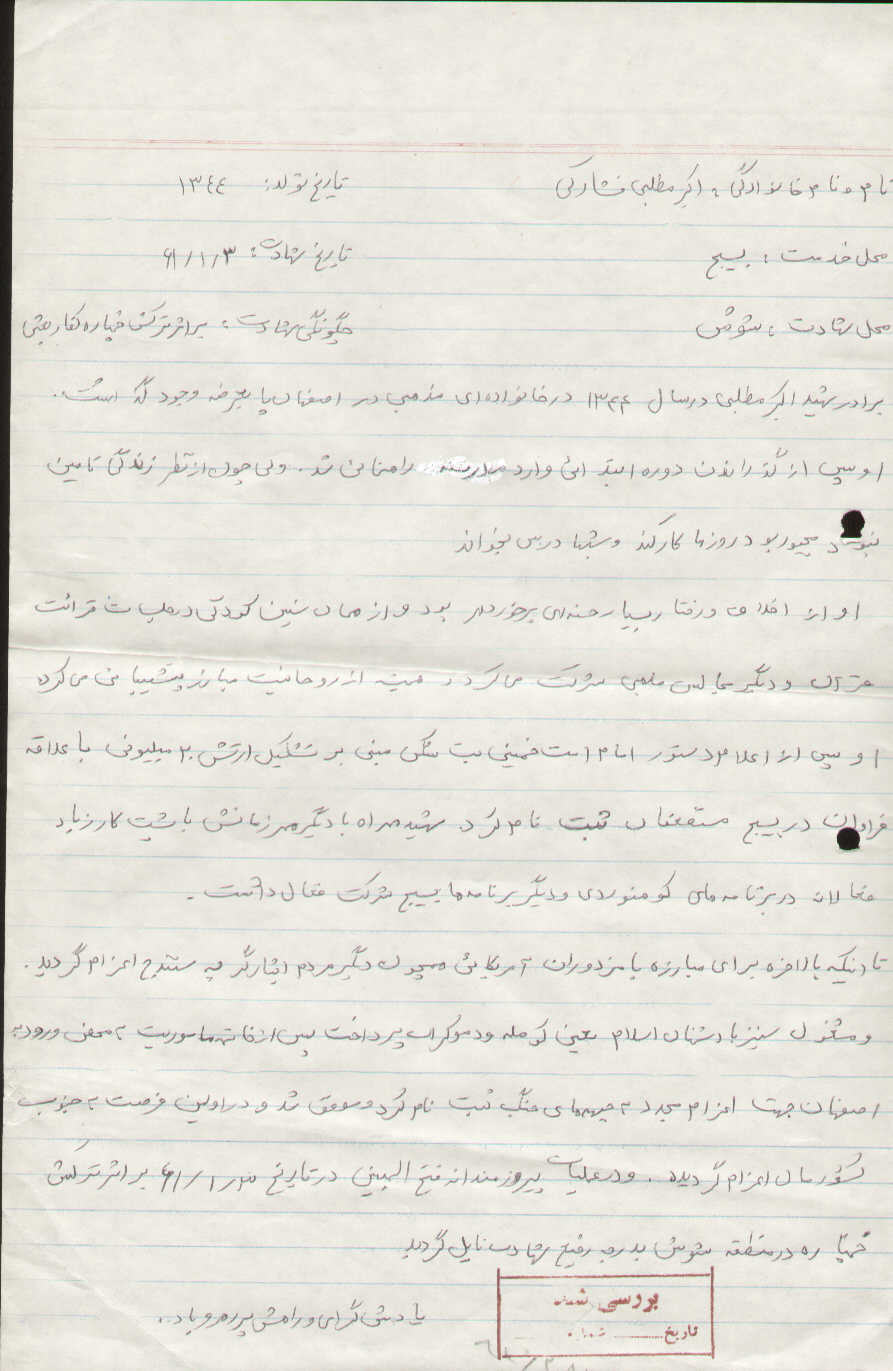 نام و نام خانوادگی : اکبر مطلبی فشارکی تاریخ تولد: ۱۳٤٤
محل خدمت : بسیج تاریخ شهادت : ۶۱/۱/۳
محل شهادت : شوش چگونگی شهادت : براثر ترکش خمپاره کفار بعثی
برادر شهید اکبر مطلبی درسال ۱۳۴۴ درخانواده ای مذهبی در اصفهان پا بعرضه وجود گذاشت .
او پس از گذراندن دوره ابتدائی وارد مدرسه راهنمائی شد . ولی چون از نظر زندگی تامین
نبود مجبور بود روزها کارکند و شبها درس بخواند
او از اخلاق و رفتار بسیار حسنه ای برخوردار بود و از همان سنین کودکی درجلسات قرائت
قرآن و دیگر مجالس مذهبی شرکت می کرد و همیشه از روحانیت مبارز پشتیبانی می کرد
او پس از اعلام دستور امام امت خمینی بت شکن مبنی بر تشکیل ارتش ۲۰ میلیونی با علاقه
فراوان در بسیج مستضعفان ثبت نام کرد. شهید همراه با دیگر همرزمانش با پشت کار زیاد
فعالانه در برنامه های کوهنوردی و دیگر برنامه های بسیج شرکت فعال داشت .
تا اینکه بالاخره برای مبارزه با مزدوران آمریکائی همچون دیگر مردم ایثارگر به سنندج اعزام گردید .
و مشغول ستیز با دشمنان اسلام یعنی کومله و دموکرات پرداخت پس از خاتمه ماموریت به محض ورود به
اصفهان جهت اعزام مجدد به جبهه های جنگ ثبت نام کرد و موفق شد و در اولین فرصت به جنوب
کشورمان اعزام گردیده . و در عملیات پیروزمندانه فتح المبین در تاریخ ۶۱/۱/۳ بر اثر ترکش
خمپاره در منطقه شوش بدرجه رفیع شهادت نایل گردید
یادش گرامی و راهش پر رهرو باد .
بررسی شد
تاریخ شماره